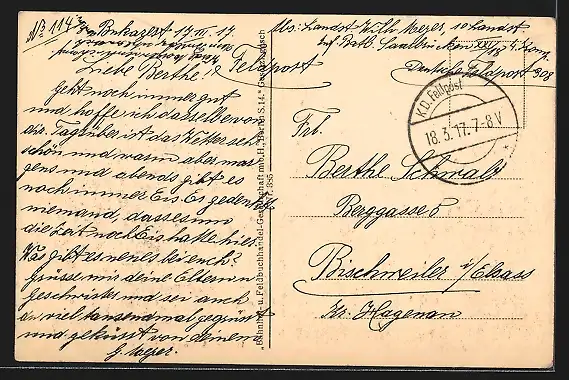 No 114
Bukarest 17.III.17.
Liebe Berthe!
Feldpost
Geht noch immer gut
und hoffe ich dasselbe von
dir. Tagsüber ist das Wetter sehr
schön und warm aber mor
gens und abends gibt es
noch immer Eis. Es gedenkt
niemand, dass es um
die Zeit noch Eis hatte hier.
Was gibt es neues bei euch?
Grüsse mir deine Eltern u.
Geschwister und sei auch
du viel tausendmal gegrüsst
und geküsst von deinem
G. Meyer.
"Bahnhof- u. Feldbuchhandel-Gesellschaft m.b.H., Berlin S.14." Gesetzl. gesch.
Nr. 385
Abs: Landst. Meyer, 1e Landst.
Inf. Batl. Saarbrücken XXI/8 4. Komp.
Deutsche Feldpost 308
K.D. Feldpost
18.3.17. 7-8 V
Frl.
Berthe Schwab
Berggasse 5
Bischweiler i/Elsass
Kr. Hagenau